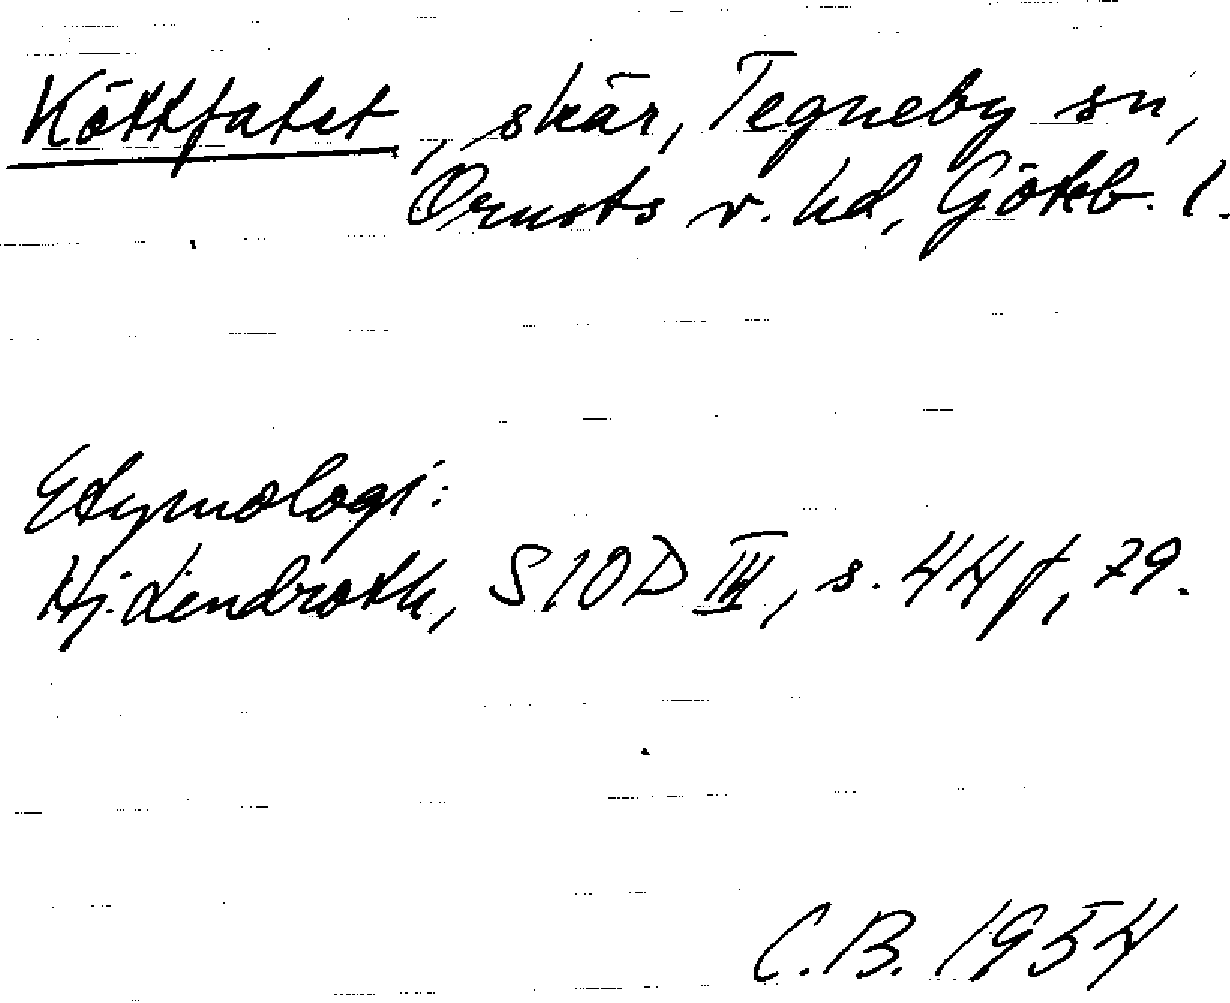 Köttfatet, skär, Tegneby sn,
Orusts v. hd, Göteb. l.
Etymologi:
Hj. Lindroth, SIOD III, s. 44 f, 79.
C.B. 1954